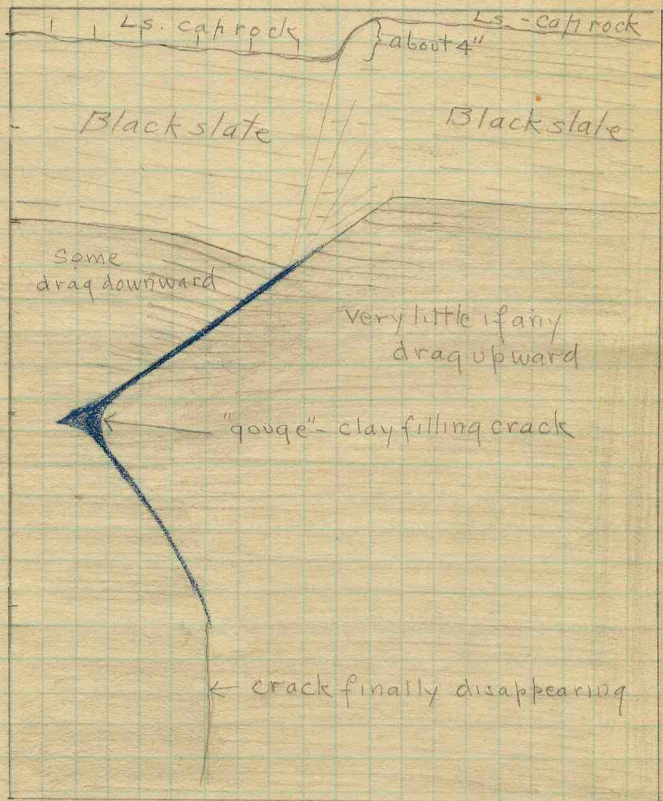 Ls. cap rock
Ls. - cap rock
about 4"
Black slate
Black slate
Some
drag downward
Very little if any
drag upward
"gouge" - clay filling crack
crack finally disappearing